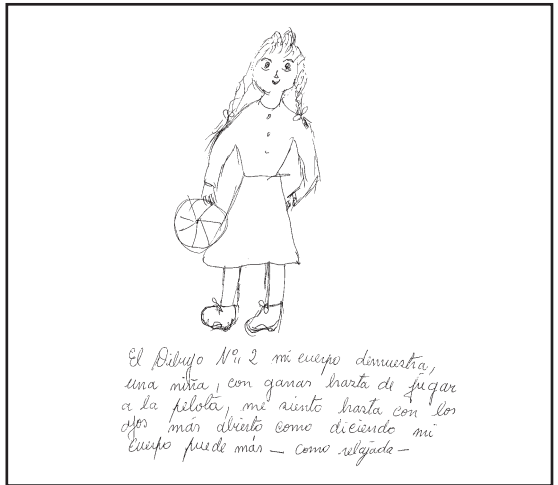 El Dibujo Nº 2 mi cuerpo demuestra,
una niña, con ganas hasta de jugar
a la pelota, me siento hasta con los
ojos más abierto como diciendo mi
cuerpo puede más — como relajada —